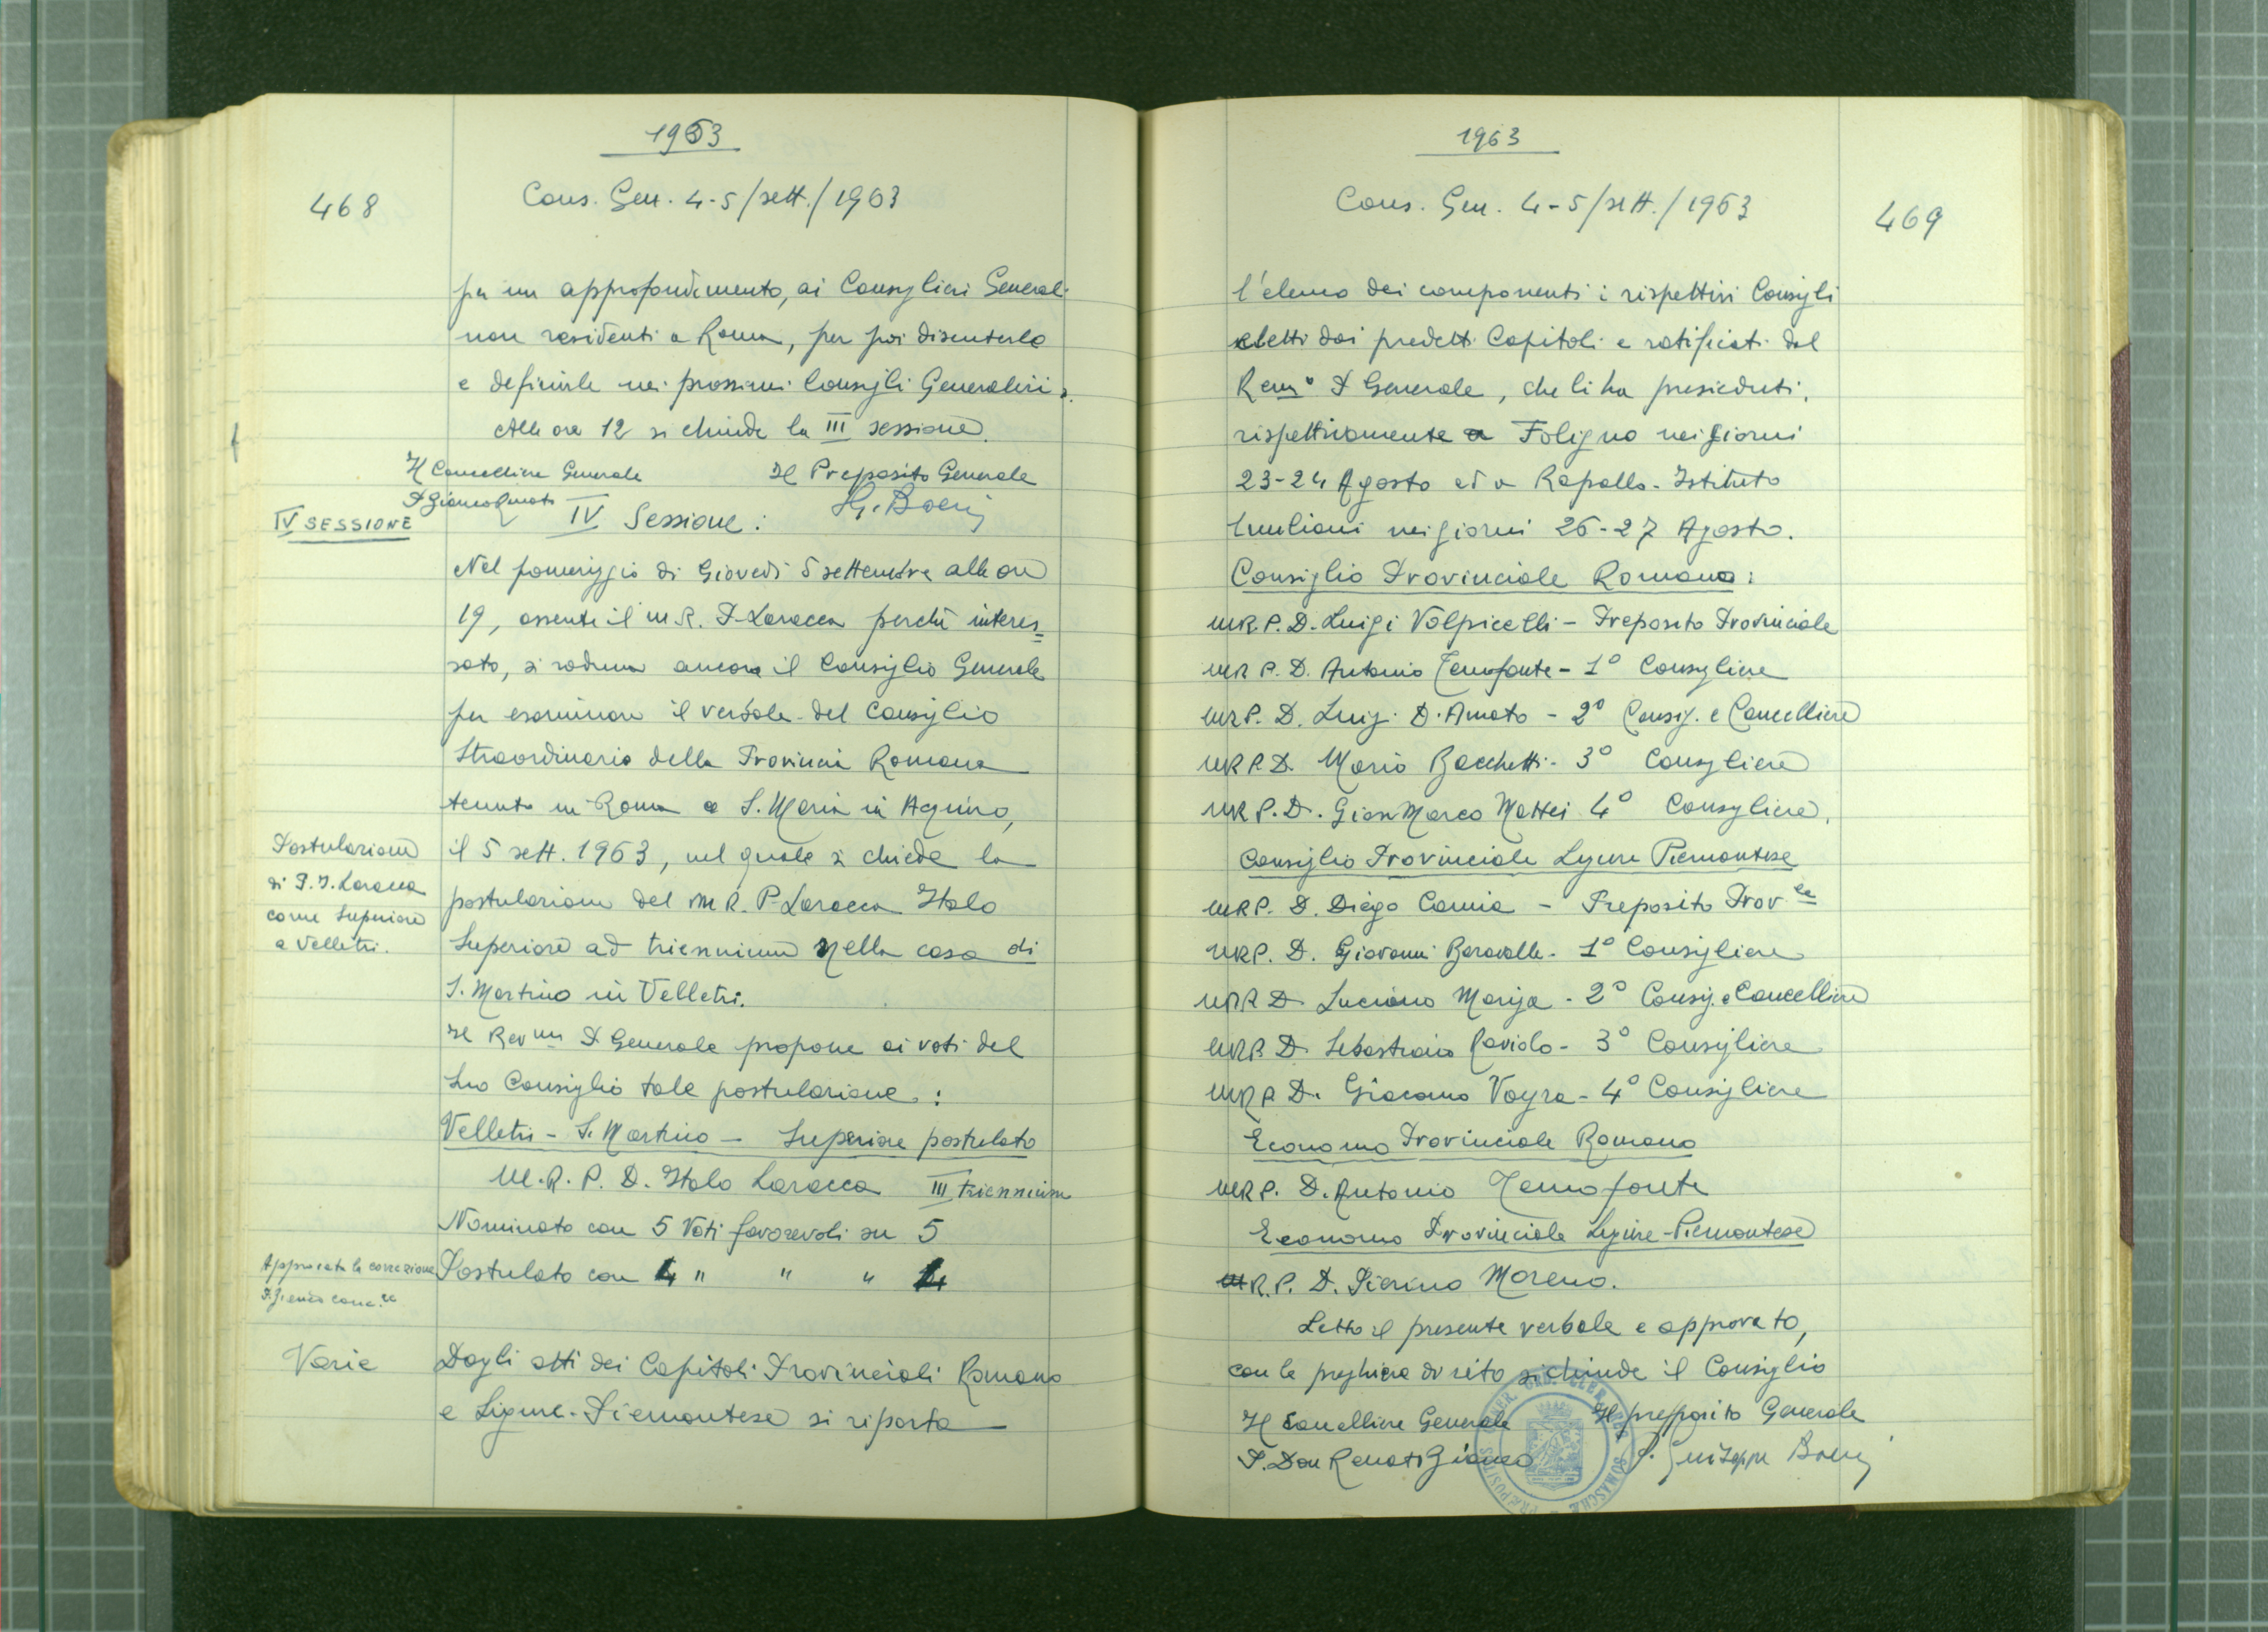 1963
468
Cons. Gen. 4-5/sett./1963
per un approfondimento, ai Consiglieri Generali
non residenti a Roma, per poi discuterle
e definirle nei prossimi Consigli Generalizi.
Alle ore 12 si chiude la III sessione.
Il Cancelliere Generale Il Preposito Generale
P. Gianco Renato G. Boeris
IV SESSIONE
IV Sessione:
Nel pomeriggio di Giovedì 5 settembre alle ore
19, assente il M.R. P. Laracca perchè interes=
sato, si raduna ancora il Consiglio Generale
per esaminare il verbale del Consiglio
Straordinario della Provincia Romana
tenuto in Roma a S. Maria in Aquiro,
il 5 sett. 1963, nel quale si chiede la
postulazione del M.R. P. Laracca Italo
Superiore ad triennium nella casa di
S. Martino in Velletri.
Postulazione
di P. I. Laracca
come Superiore
a Velletri.
Il Rev.mo P. Generale propone ai voti del
Suo Consiglio tale postulazione:
Velletri - S. Martino - Superiore postulato
M.R.P. D. Italo Laracca III triennium
Nominato con 5 Voti favorevoli su 5
Postulato con 4 " " " 4
Approvata la correzione
P. Gianco canc.re
Varie
Dagli atti dei Capitoli Provinciali Romano
e Ligure-Piemontese si riporta
1963
Cons. Gen. 4-5/sett./1963
469
l'elenco dei componenti i rispettivi Consigli
eletti dai predetti Capitoli e ratificati dal
Rev.mo P. Generale, che li ha presieduti,
rispettivamente a Foligno nei giorni
23-24 Agosto ed a Rapallo-Istituto
Emiliani nei giorni 26-27 Agosto.
Consiglio Provinciale Romano:
M.R.P. D. Luigi Volpicelli - Preposito Provinciale
M.R.P. D. Antonio Temofonte - 1° Consigliere
M.R.P. D. Luigi D'Amato - 2° Consig. e Cancelliere
M.R.P.D. Mario Bacchetti - 3° Consigliere
M.R.P. D. Gian Marco Mattei 4° Consigliere.
Consiglio Provinciale Ligure Piemontese
M.R.P. D. Diego Camia - Preposito Prov.le
M.R.P. D. Giovanni Baravalle - 1° Consigliere
M.R.P. D. Luciano Mariga - 2° Consig. e Cancelliere
M.R.P. D. Sebastiano Raviolo - 3° Consigliere
M.R.P. D. Giacomo Vayra - 4° Consigliere
Economo Provinciale Romano
M.R.P. D. Antonio Temofonte
Economo Provinciale Ligure-Piemontese
M.R.P. D. Pierino Moreno.
Letto il presente verbale e approvato,
con le preghiere di rito si chiude il Consiglio
Il Cancelliere Generale Il preposito Generale
P. Don Renato Gianco P. Giuseppe Boeris